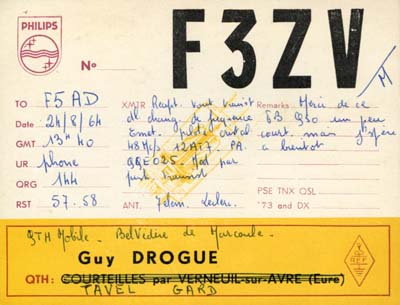 PHILIPS
F3ZV
No
TO F5AD
Date 24/8/64
GMT 13H40
UR phone
QRG 144
RST 57.58
XMTR Recept.
chang. de frequence
Emet. pilote
48 Mc/s 12AT7. PA.
QQE025. Mod. par
Remarks Merci de ce
TB QSO un peu
court. mais j'espère
a bientot
ANT.
PSE TNX QSL
'73 and DX
QTH Mobile. Belvédère de Marcoule.
Guy DROGUE
QTH: COURTEILLES par VERNEUIL-sur-AVRE (Eure)
TAVEL GARD
REF